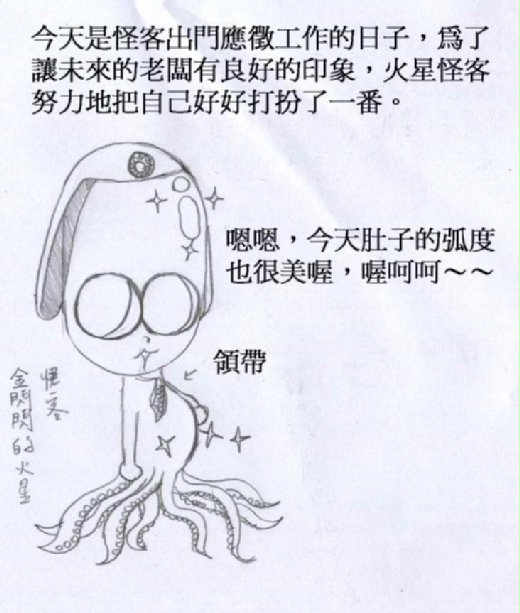 今天是怪客出門應徵工作的日子，為了
讓未來的老闆有良好的印象，火星怪客
努力地把自己好好打扮了一番。
嗯嗯，今天肚子的弧度
也很美喔，喔呵呵～～
領帶
金閃閃的火星
怪客